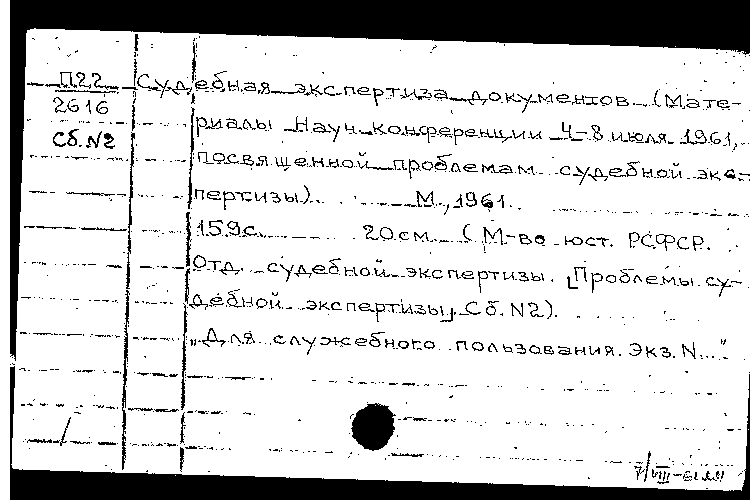 П22
2616
Сб. N2
Судебная экспертиза документов (Мате-
риалы Науч. конференции 4-8 июля 1961,
посвященной проблемам судебной экс-
пертизы). М., 1961.
159с. 20см. (М-во юст. РСФСР.
Отд. судебной экспертизы. [Проблемы су-
дебной экспертизы], Сб. N2).
"Для служебного пользования. Экз. N..."
7/VIII-61